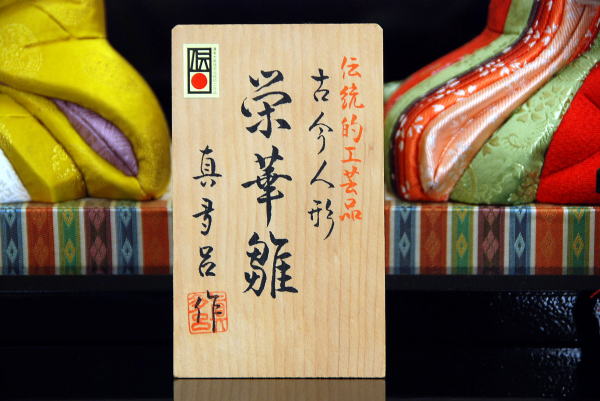 伝統的工芸品
古今人形
栄華雛
真多呂作
伝